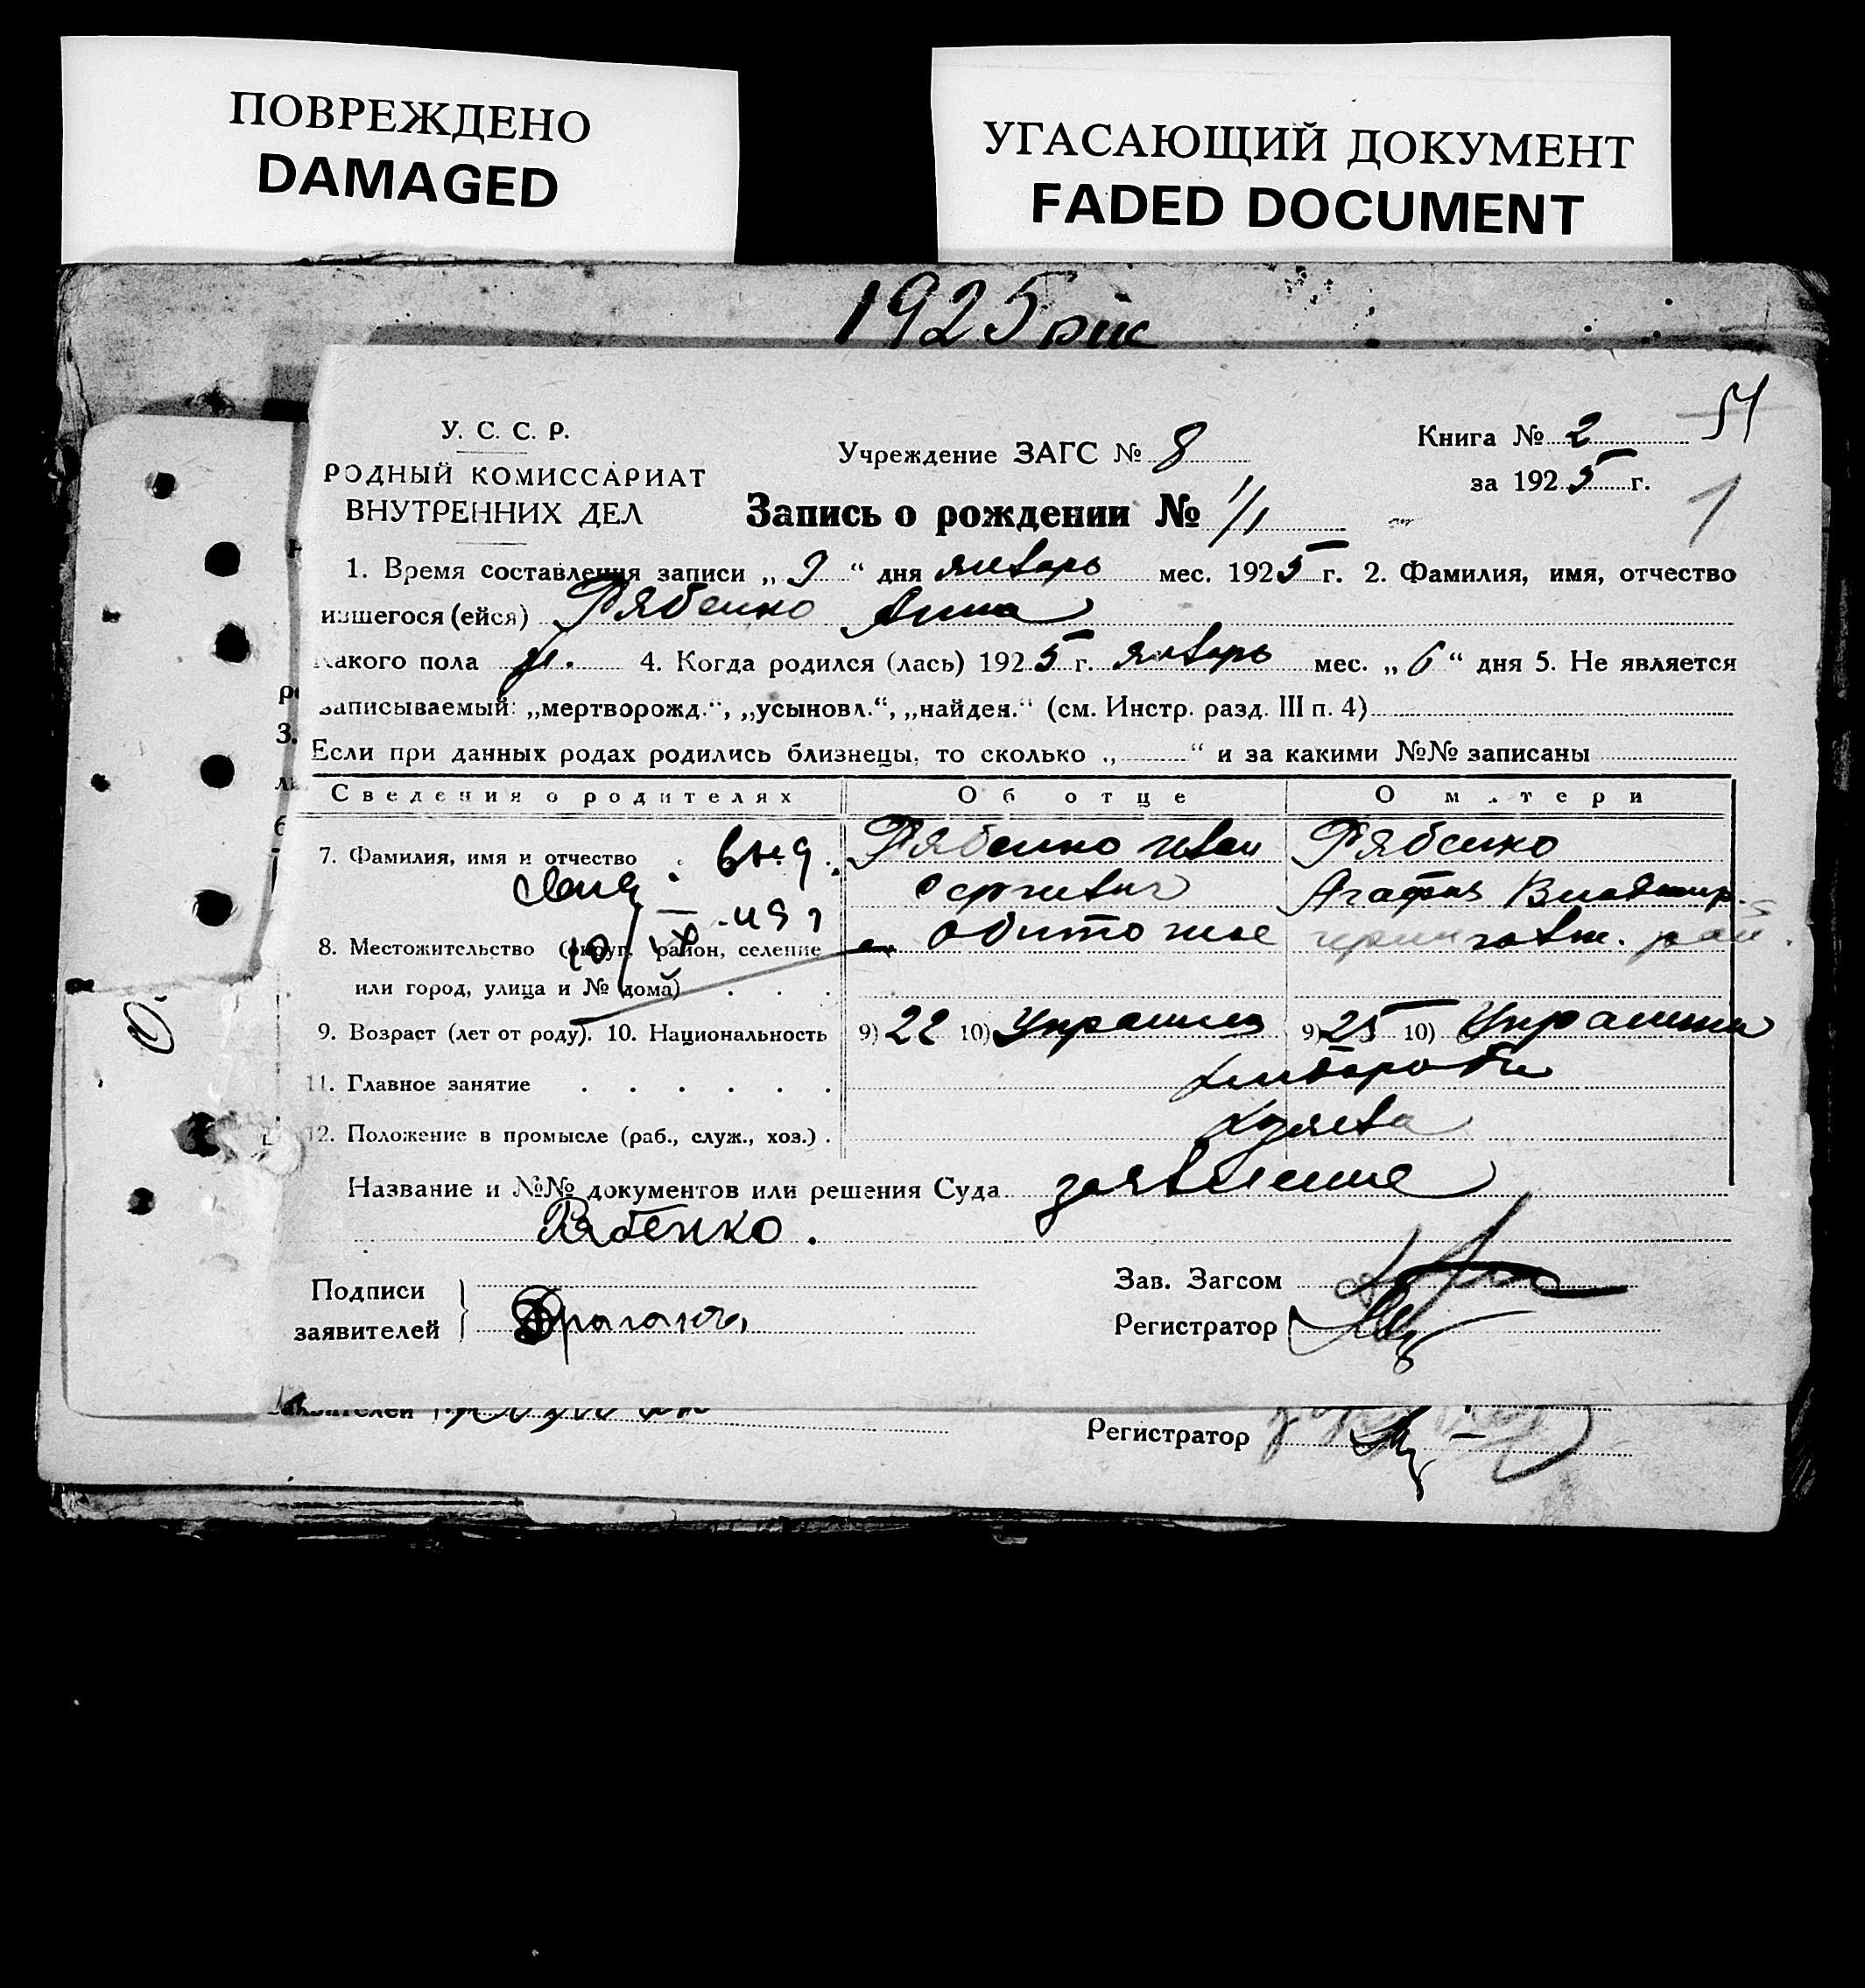 ПОВРЕЖДЕНО
DAMAGED
УГАСАЮЩИЙ ДОКУМЕНТ
FADED DOCUMENT
1925 рік
У. С. С. Р.
РОДНЫЙ КОМИССАРИАТ
ВНУТРЕННИХ ДЕЛ
Учреждение ЗАГС № 8
Книга № 2
за 1925 г.
1
Запись о рождении № 1/1
1. Время составления записи „ 9 “ дня январь мес. 1925 г. 2. Фамилия, имя, отчество
ившегося (ейся) Рябенко Анна
Какого пола ж. 4. Когда родился (лась) 1925 г. январь мес. „ 6 “ дня 5. Не является
записываемый: „мертворожд.“, „усыновл.“, „найден.“ (см. Инстр. разд. III п. 4)
Если при данных родах родились близнецы, то сколько „ “ и за какими №№ записаны
Сведения о родителях Об отце О матери
7. Фамилия, имя и отчество Рябенко Иван Рябенко
Сергиевич Агафия Владимир.
8. Местожительство (округ, район, селение Обиточное
или город, улица и № дома)
9. Возраст (лет от роду). 10. Национальность 9) 22 10) Украинец 9) 25 10) Украинка
11. Главное занятие хлебороби
12. Положение в промысле (раб., служ., хоз.) . хозяева
Название и №№ документов или решения Суда заявление
Рябенко.
Подписи
заявителей
Зав. Загсом
Регистратор
заявителей
Регистратор